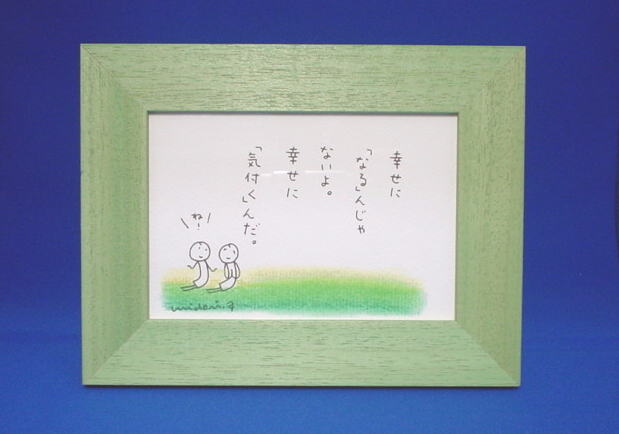 幸せに
「なる」んじゃ
ないよ。
幸せに
「気付く」んだ。
ね!
midori.f